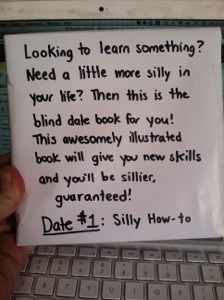 Looking to learn something?
Need a little more silly in
your life? Then this is the
blind date book for you!
This awesomely illustrated
book will give you new skills
and you'll be sillier,
guaranteed!
Date #1: Silly How-to